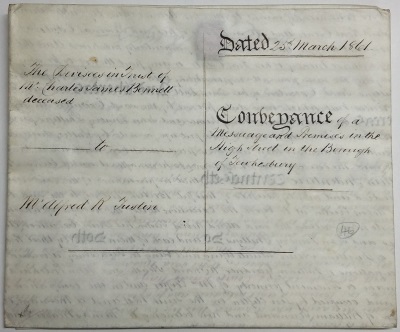 Dated 25th March 1861
The Devisees in Trust of
Mr. Charles James Bennett
deceased
to
Mr Alfred R
Conveyance of a
Messuage and Premises in the
High Street in the Borough
of Tewkesbury